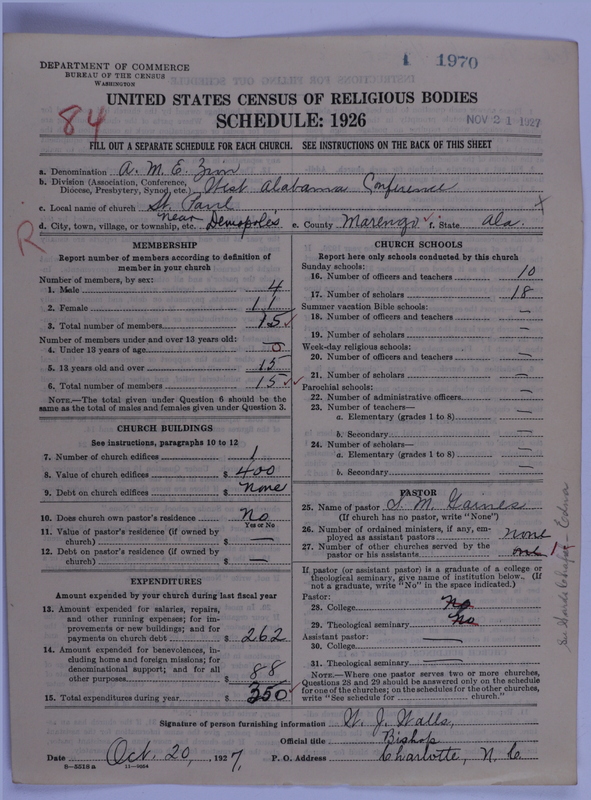 1 1970
DEPARTMENT OF COMMERCE
BUREAU OF THE CENSUS
WASHINGTON
UNITED STATES CENSUS OF RELIGIOUS BODIES
SCHEDULE: 1926
NOV 21 1927
84
FILL OUT A SEPARATE SCHEDULE FOR EACH CHURCH. SEE INSTRUCTIONS ON THE BACK OF THIS SHEET
a. Denomination A. M. E. Zion
b. Division (Association, Conference, Diocese, Presbytery, Synod, etc.) West Alabama Conference
c. Local name of church St. Paul
d. City, town, village, or township, etc. near Demopoles e. County Marengo f. State Ala.
R
X
MEMBERSHIP
Report number of members according to definition of
member in your church
Number of members, by sex:
1. Male 4
2. Female 11
3. Total number of members 15
Number of members under and over 13 years old:
4. Under 13 years of age 0
5. 13 years old and over 15
6. Total number of members 15
NOTE.—The total given under Question 6 should be the
same as the total of males and females given under Question 3.
CHURCH BUILDINGS
See instructions, paragraphs 10 to 12
7. Number of church edifices 1
8. Value of church edifices $ 400
9. Debt on church edifices $ none
10. Does church own pastor's residence No
Yes or No
11. Value of pastor's residence (if owned by
church) $ —
12. Debt on pastor's residence (if owned by
church) $ —
EXPENDITURES
Amount expended by your church during last fiscal year
13. Amount expended for salaries, repairs,
and other running expenses; for im-
provements or new buildings; and for
payments on church debt $ 262
14. Amount expended for benevolences, in-
cluding home and foreign missions; for
denominational support; and for all
other purposes $ 88
15. Total expenditures during year $ 350
CHURCH SCHOOLS
Report here only schools conducted by this church
Sunday schools:
16. Number of officers and teachers 10
17. Number of scholars 18
Summer vacation Bible schools:
18. Number of officers and teachers —
19. Number of scholars —
Week-day religious schools:
20. Number of officers and teachers —
21. Number of scholars —
Parochial schools:
22. Number of administrative officers —
23. Number of teachers—
a. Elementary (grades 1 to 8) —
b. Secondary —
24. Number of scholars—
a. Elementary (grades 1 to 8) —
b. Secondary —
PASTOR
25. Name of pastor M. Gaines
(If church has no pastor, write "None")
26. Number of ordained ministers, if any, em-
ployed as assistant pastors none
27. Number of other churches served by the
pastor or his assistants one 1
If pastor (or assistant pastor) is a graduate of a college or
theological seminary, give name of institution below. (If
not a graduate, write "No" in the space indicated.)
Pastor:
28. College No
29. Theological seminary No
Assistant pastor:
30. College —
31. Theological seminary —
NOTE.—Where one pastor serves two or more churches,
Questions 28 and 29 should be answered only on the schedule
for one of the churches; on the schedules for the other churches,
write "See schedule for church."
Chapel - Edna
Signature of person furnishing information W. J. Walls,
Official title Bishop
Date Oct. 20, 1927. P. O. Address Charlotte, N. C.
8-5518 a 11-9064